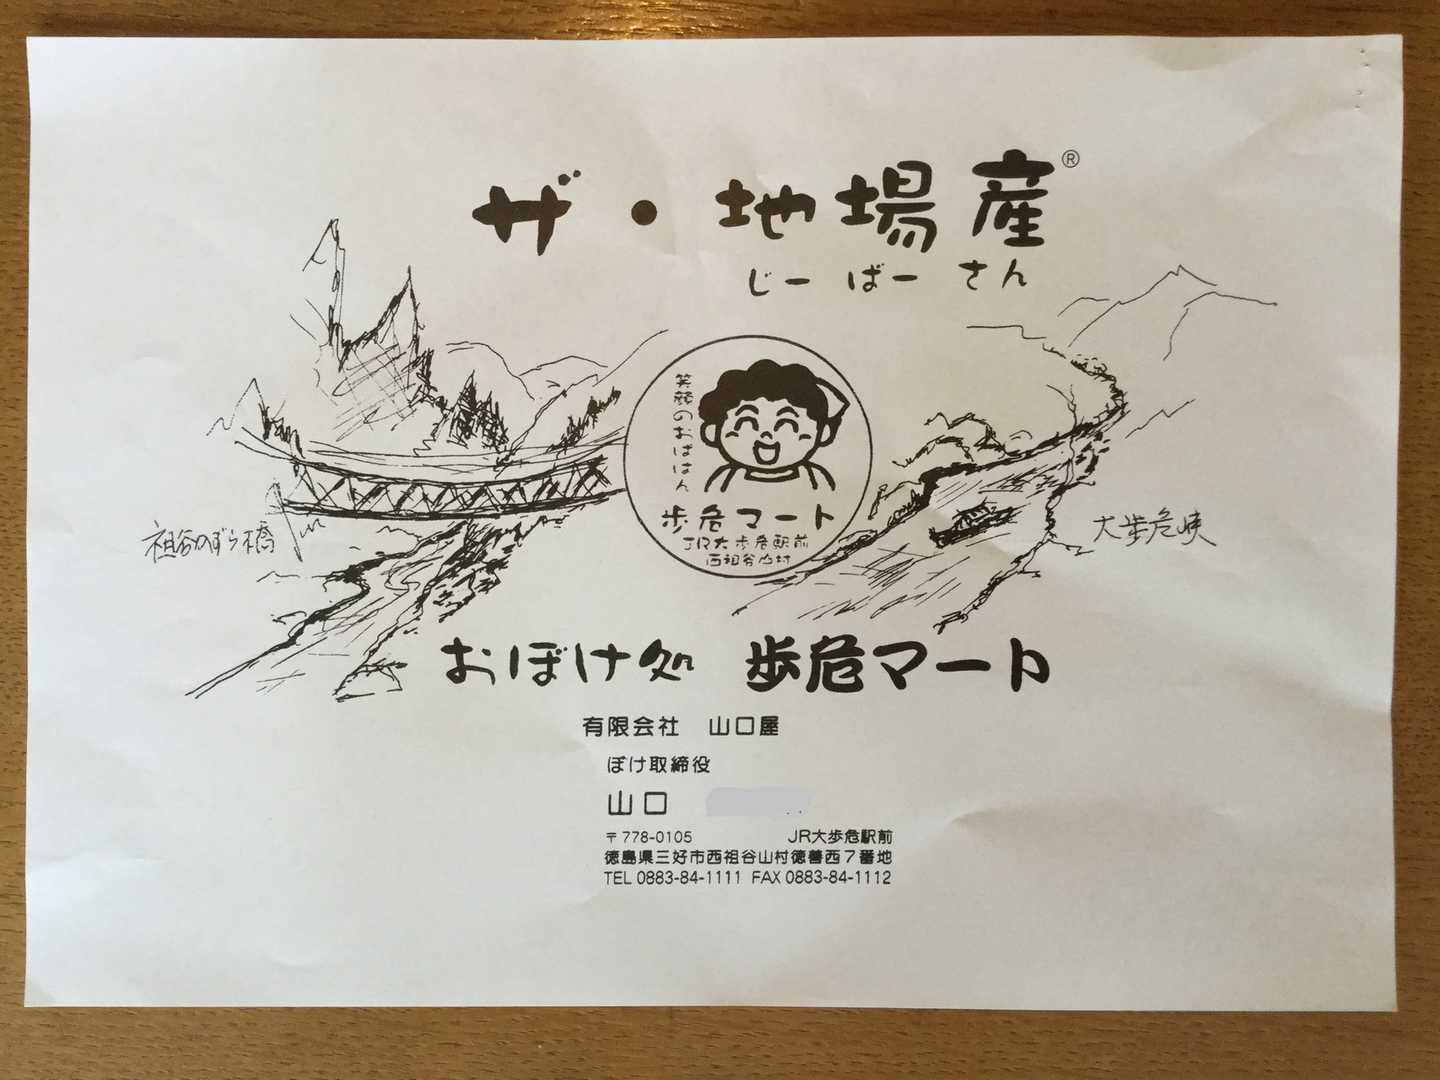 ザ・地場産®
じーばーさん
笑顔のおばはん
歩危マート
JR大歩危駅前
西祖谷山村
祖谷のかずら橋
大歩危峡
おぼけ処 歩危マート
有限会社 山口屋
ぼけ取締役
山口
〒778-0105 JR大歩危駅前
徳島県三好市西祖谷山村徳善西7番地
TEL 0883-84-1111 FAX 0883-84-1112